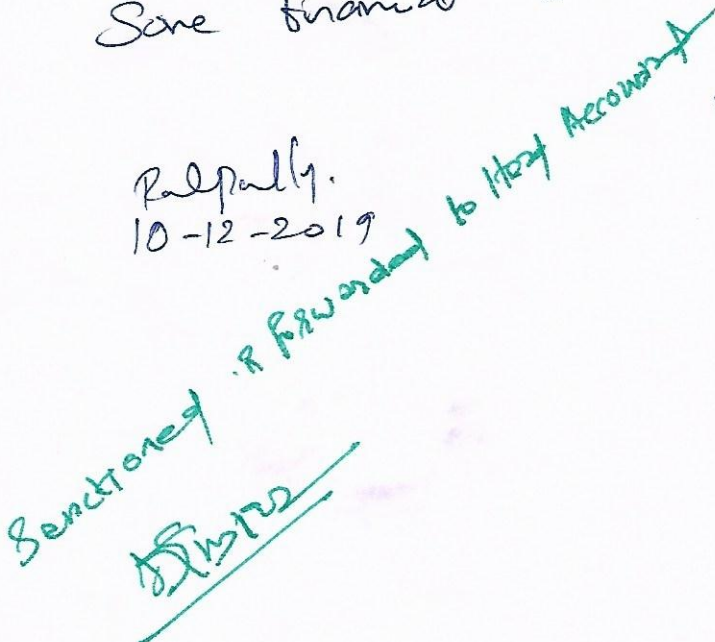 Some financial
10-12-2019
Sanctioned & forwarded to Head Accountant